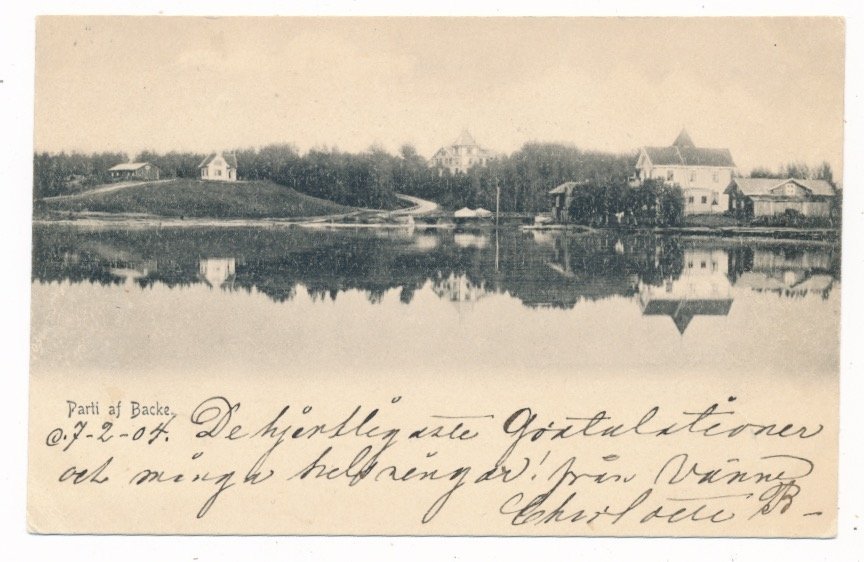 Parti af Backe.
d. 7-2-04. De hjertligaste Gratulationer
och många helsningar! från Vännen
Charlotte B-